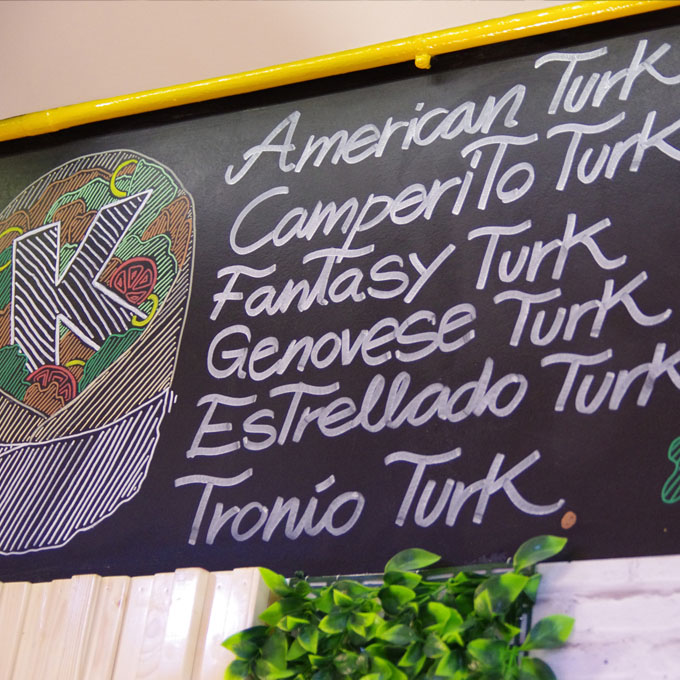 American Turk
Camperito Turk
Fantasy Turk
Genovese Turk
Estrellado Turk
Tronío Turk.
K